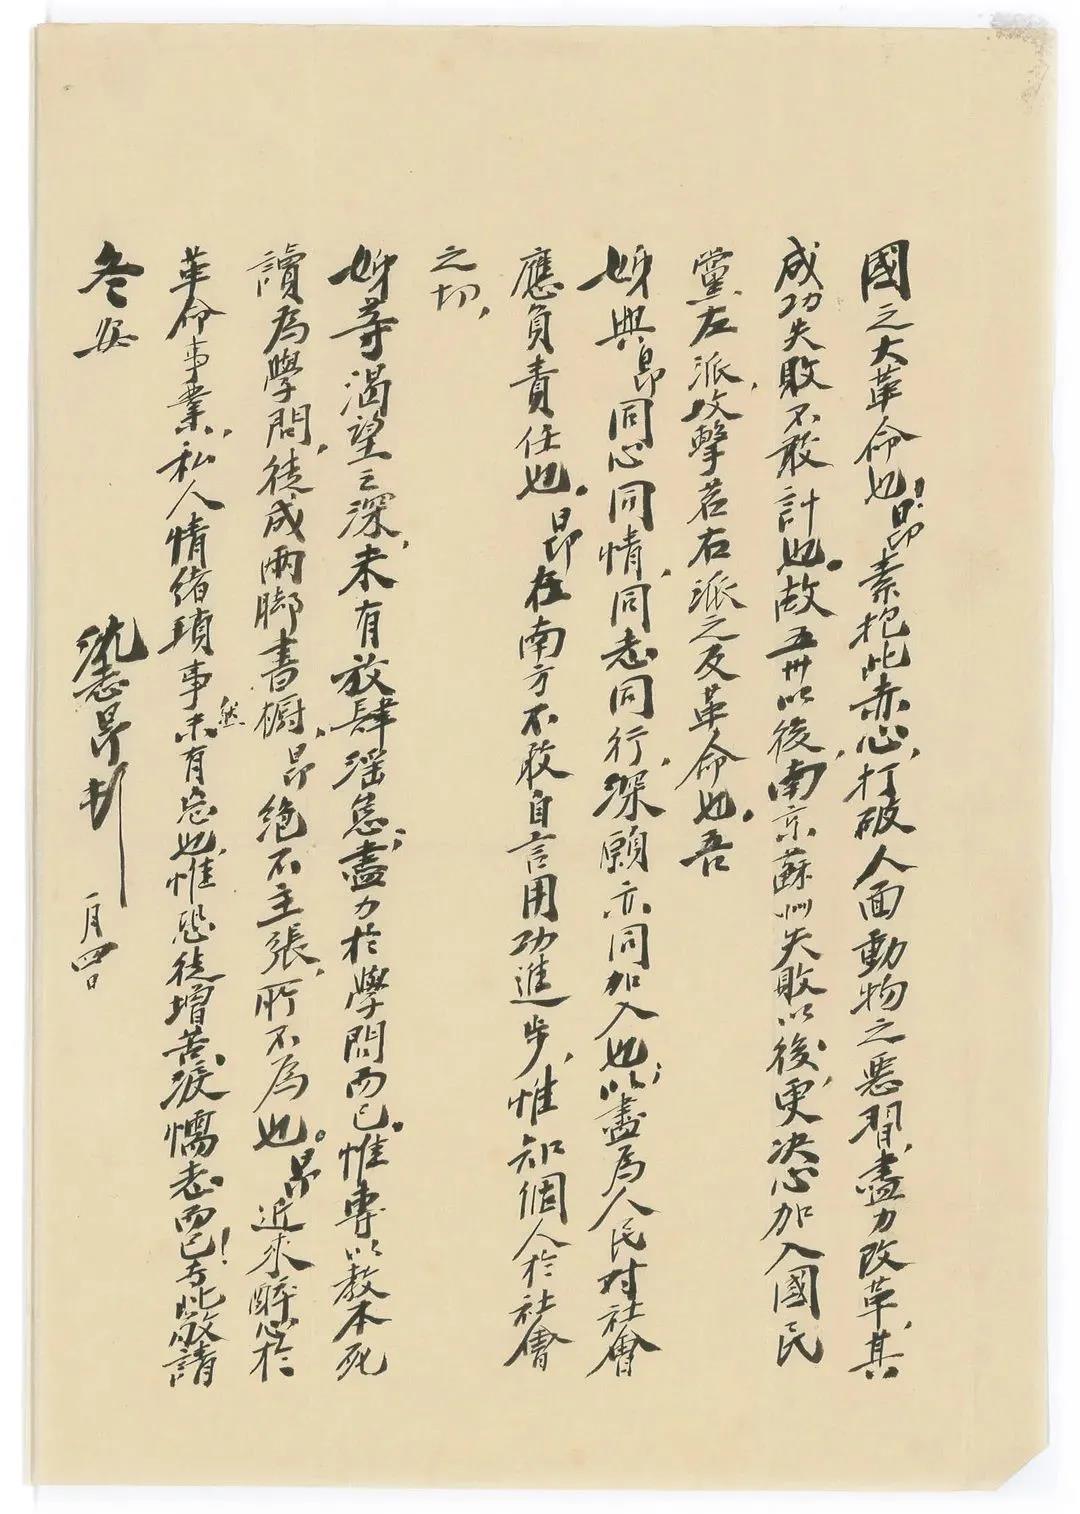 國之大革命也！昴素抱此赤心，打破人面動物之惡習，盡力改革，其
成功失敗不敢計也。故五卅以後，南京蘇州失敗以後，更決心加入國民
黨左派，攻擊若右派之反革命也。吾
姊與昴同心同情，同志同行，深願亦同加入也；以盡為人民對社會
應負責任也。昴在南方不敢自言用功進步，惟知個人於社會
之切，
姊等渴望之深，未有放肆滛怠；盡力於學問而已。惟專以教本死
讀為學問，徒成兩脚書橱，昴絕不主張，所不為也。昴近來醉心於
革命事業，私人情緒瑣事，未然有忘也，惟恐徒增苦淚懦志而已！專此敬請
冬安
沈志昴 一月四日